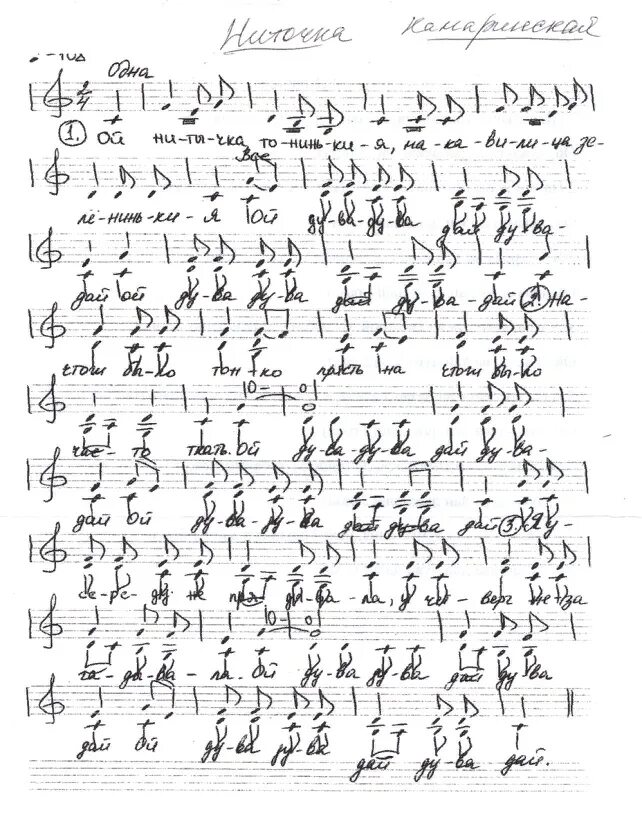 Ниточка камаринская
Одна
1. Ой ни-ты-чка то-нинь-ки-я, на-ка-ви-ли-ца зе-
Все
ле-нинь-ки-я Ой ду-ва-ду-ва дай ду-ва-
дай ой ду-ва ду-ва дай ду-ва-дай 2. На-
что ж бы-ло тон-ко прясть на что ж бы-ло
час-то ткать. Ой ду-ва-ду-ва дай ду-ва-
дай ой ду-ва-ду-ва дай ду-ва дай 3. Я у-
се-ре-ду не пря-ды-ва-ла, у чет-верг не за-
га-ды-ва-ла Ой ду-ва ду-ва дай ду-ва
дай ой ду-ва ду-ва дай ду-ва-дай.